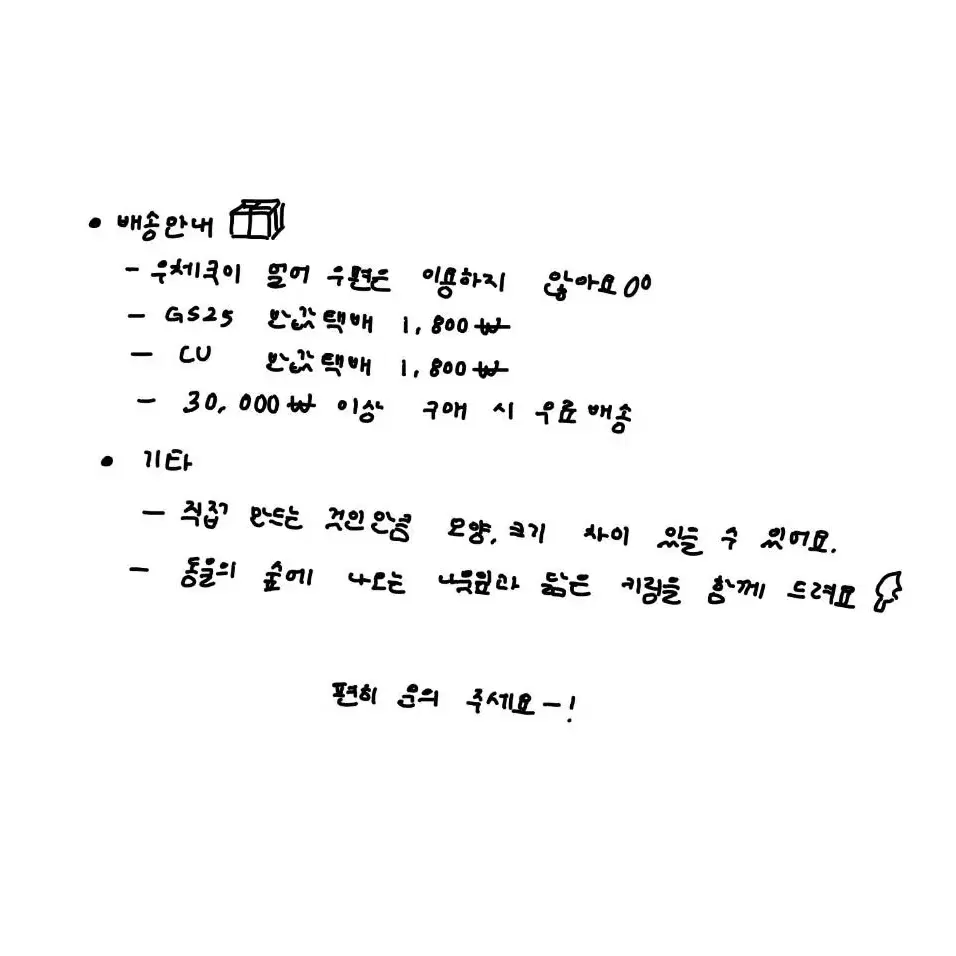 • 배송안내
- 우체국이 멀어 우편은 이용하지 않아요
- GS25 반값택배 1,800₩
- CU 반값택배 1,800₩
- 30,000₩ 이상 구매 시 무료배송
• 기타
- 직접 만드는 것인만큼 모양, 크기 차이 있을 수 있어요.
- 동물의 숲에 나오는 나뭇잎과 닮은 키링을 함께 드려요
편히 문의 주세요-!